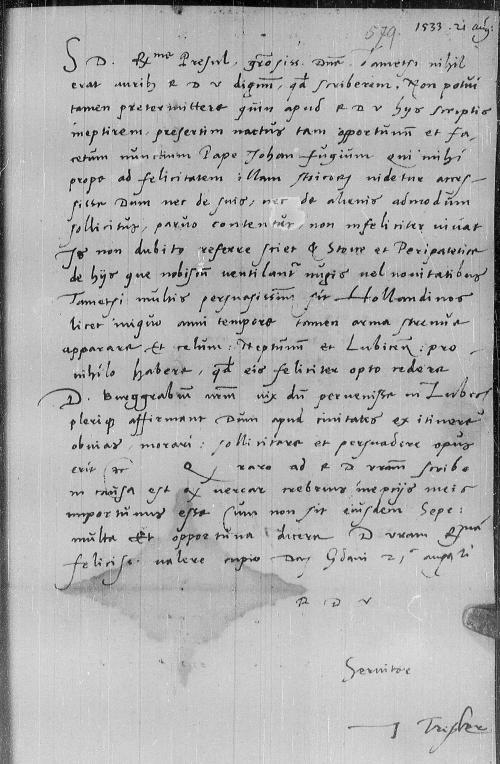 579. 1533. 21 aug:
S D. R^me Presul, gros^iss. Dne. Tametsi nihil
erat aurib R D V dignu, qd scriberem, Non potui
tamen pretermittere quin apud R D V hys scriptis
ineptirem, presertim nactus tam opportunu et fa,
cetum nunctium Pape Johan fugium qui mihi
prope ad felicitatem illam stoicor videtur acces-
sisse Dum nec de suis, nec de alienis admodum
sollicitus, parvo contentus, non infeliciter vivat
Is non dubito referre sciet & Stoice et Peripatetice
de hys que nobiscu ventilant nugis vel novitatibus
Tametsi multis persuasissimu sit Hollandinos
licet iniquo anni tempore tamen arma strenue
apparare Et celum: Neptunum et Lubicen: pro
nihilo habere, qd eis feliciter opto cedere
D. Burggrabiu nrm vix du pervenisse in Lubecs
pleriq affirmant Dum apud civitates ex itinere
obvias, morari: sollicitare et persuadere opus
erit etc Q raro ad R D vram scribo
in causa est q verear crebrius ineptijs meis
importunus esse Cum non sit eiusdem Sepe:
multa Et opportuna dicere D vram R^ma
felicis^e valere cupio Dat Gdani 21^a augusti
R D V
Servitor
J Tresler